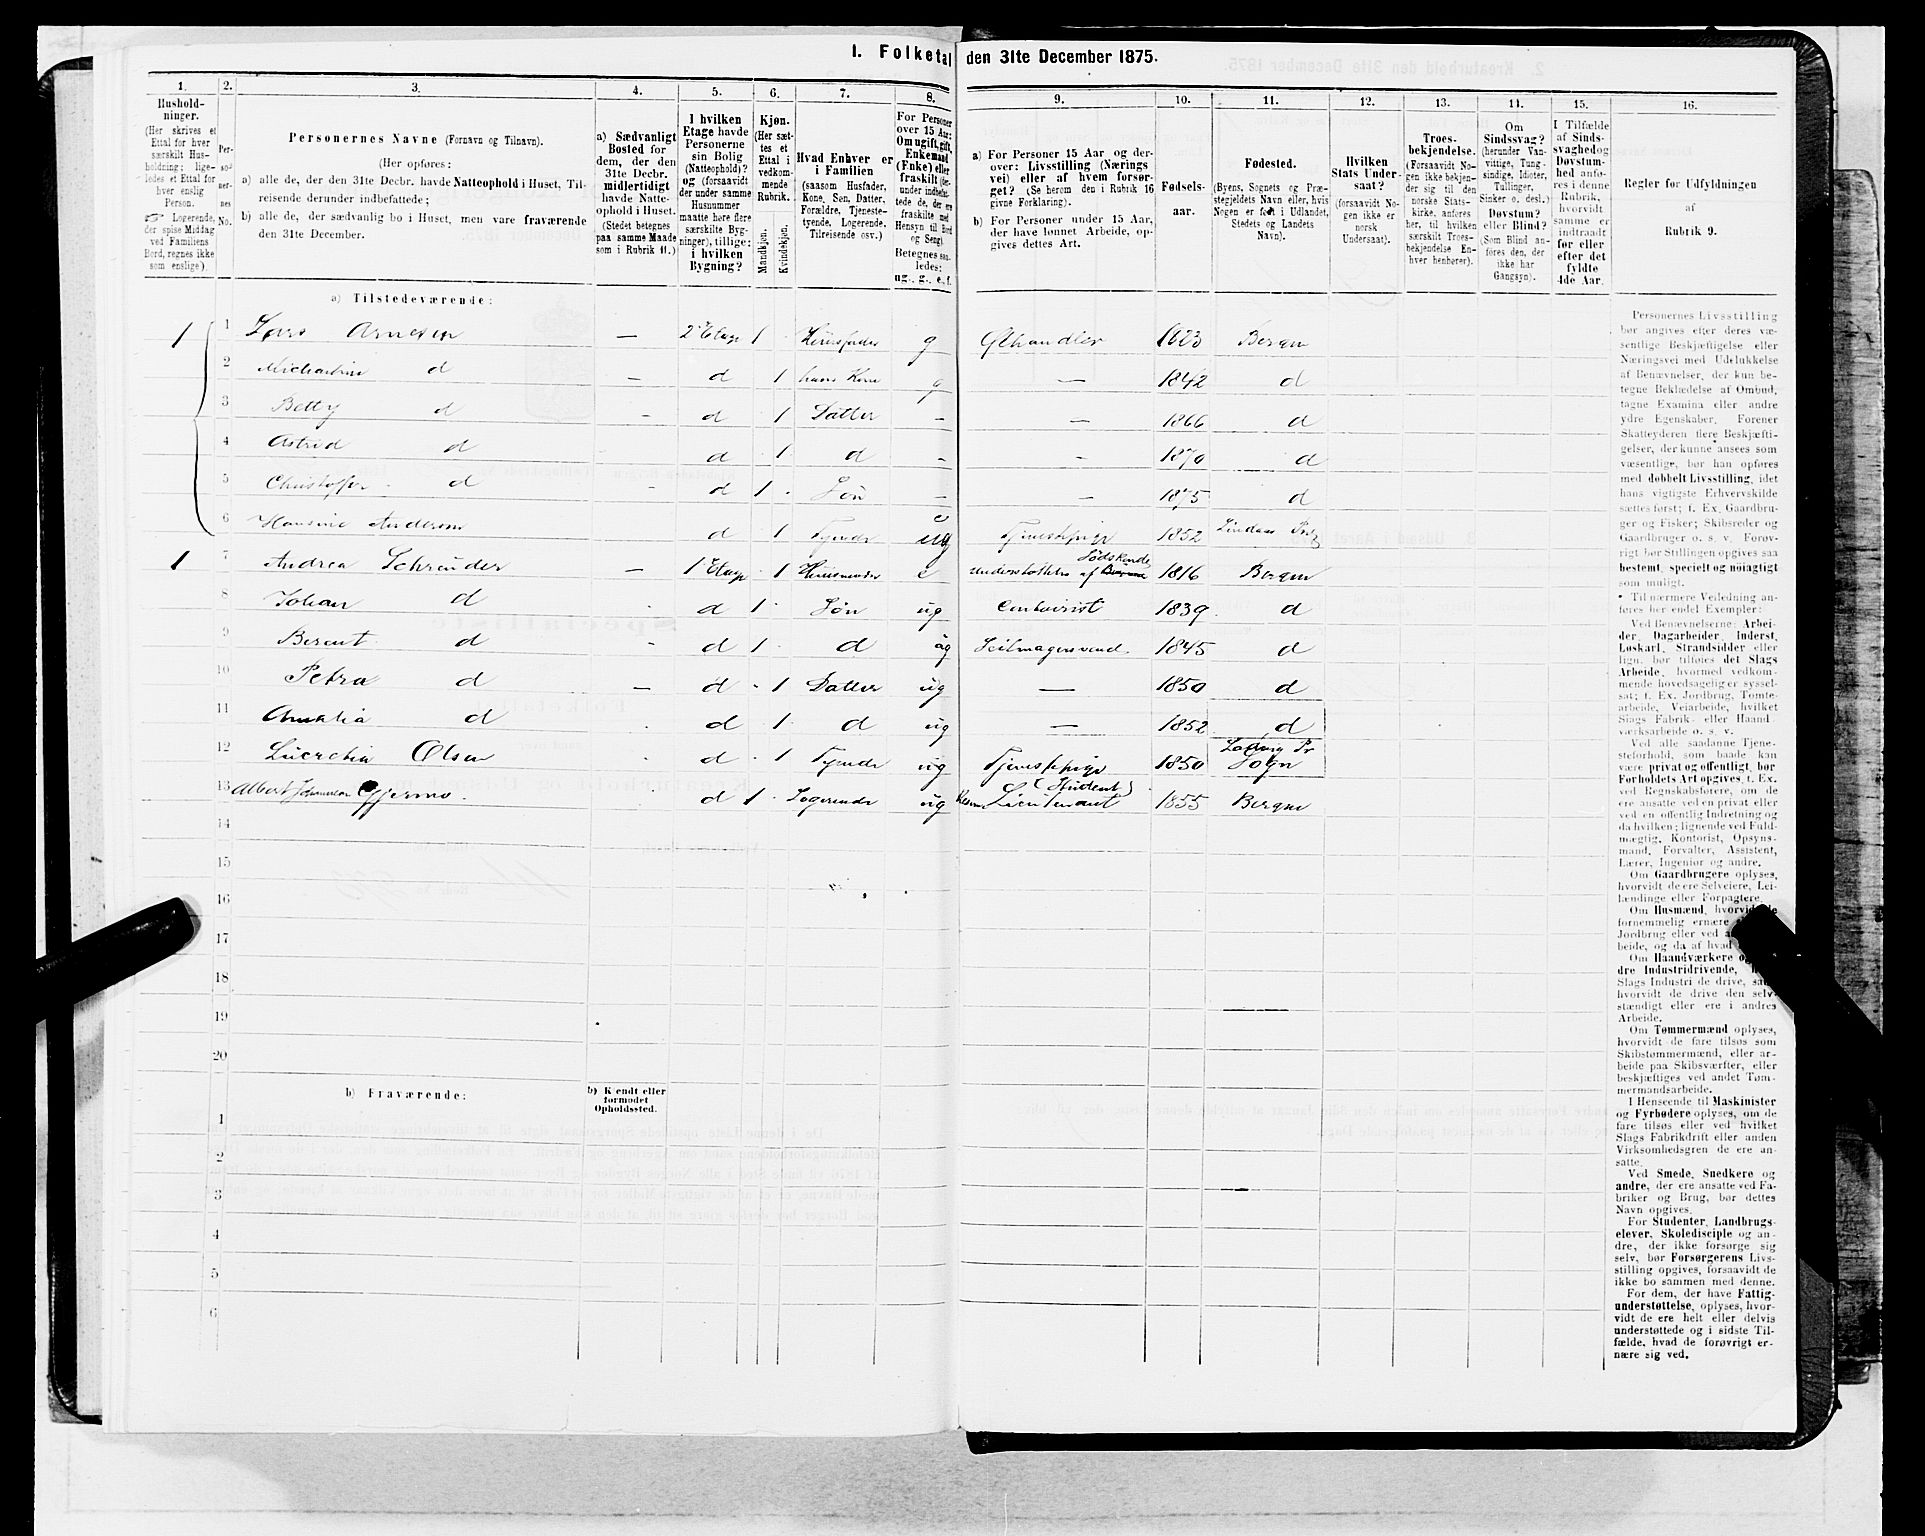 1. Folketal den 31te December 1875.
1. 2. 3. 4. 5. 6. 7. 8. 9. 10. 11. 12. 13. 14. 15. 16.
Hushold-
ninger.
(Her skrives et
Ettal for hver
særskilt Hus-
holdning; lige-
ledes et Ettal for
hver enslig
Person.
Logerende,
der spise Middag
ved Familiens
Bord, regnes ikke
som enslige).
Per-
so-
ner-
nes
No.
Personernes Navne (Fornavn og Tilnavn).
(Her opføres:
a) alle de, der den 31te Decbr. havde Natteophold i Huset, Til-
reisende derunder indbefattede;
b) alle de, der sædvanlig bo i Huset, men vare fraværende
den 31te December.
a) Sædvanligt
Bosted for
dem, der den
31te Decbr.
midlertidigt
havde Natte-
ophold i Huset.
(Stedet betegnes
paa samme Maade
som i Rubrik 11.)
I hvilken
Etage havde
Personerne
sin Bolig
(Natteophold)?
og (forsaavidt
der under samme
Husnummer
maatte høre flere
særskilte Byg-
ninger), tillige:
i hvilken
Bygning?
Kjøn.
(Her sæt-
tes et
Ettal i
vedkom-
mende
Rubrik.
Mandkjøn.
Kvindekjøn.
Hvad Enhver er
i Familien
(saasom Husfader,
Kone, Søn, Datter,
Forældre, Tjeneste-
tyende, Logerende,
Tilreisende osv.)
For Personer
over 15 Aar:
Om ugift, gift,
Enkemand
(Enke) eller
fraskilt
Betegnes saa-
ledes:
ug., g., e., f.
a) For Personer 15 Aar og der-
over: Livsstilling (Nærings-
vei) eller af hvem forsør-
get? (Se herom den i Rubrik 16
givne Forklaring).
b) For Personer under 15 Aar,
der have lønnet Arbeide, op-
gives dettes Art.
Fødsels-
aar.
Fødested.
(Byens, Sognets og Præ-
stegjeldets Navn eller, hvis
Nogen er født i Udlandet,
Stedets og Landets
Navn).
Hvilken
Stats Under-
saat?
(forsaavidt No-
gen ikke er
norsk
Undersaat).
Troes-
bekjendelse.
(Forsaavidt No-
gen ikke bekjen-
der sig til den
norske Stats-
kirke, anføres
her, til hvilken
særskilt Troes-
bekjendelse En-
hver henhører).
Om
Sindssvag?
(herunder Van-
vittige, Tung-
sindige, Idioter,
Tullinger,
Sinker o. desl.)
Døvstum?
eller Blind?
(Som Blind an-
føres den, der
ikke har
Gangsyn).
I Tilfælde
af Sinds-
svaghed og
Døvstum-
hed anfø-
res i denne
Rubrik,
hvorvidt
samme er
indtraadt
før eller
efter det
fyldte
4de Aar.
Regler for Udfyldningen
af
Rubrik 9.
a) Tilstedeværende:
1 1 Lars Arnesen — 2 Etage 1 Huusfader g Ølhandler 1833 Bergen
2 Michaeline d — d 1 hans Kone g — 1842 d
3 Betty d — d 1 Datter — — 1866 d
4 Astrid d d 1 d — — 1870 d
5 Christoffer d - d 1 Søn — — 1875 d
6 Hansine d 1 Tyende ug Tjenestepige 1852 Lindaas
1 7 Andrea Schrøuder — 1 Etage 1 Huusmoder e understøttes af Sødskende 1816 Bergen
8 Johan d d 1 Søn ug 1839 d
9 Berent d d 1 d ug Seilmagersvend 1845 d
10 Petra d — d 1 Datter ug — 1850 d
11 Amalia d d 1 d ug — 1852 d
12 Lucretia Olsen d 1 Tyende ug Tjenestepige 1850 Sogn
13 Albert Gjermo d 1 Logerende ug Lieutenant (Student) 1855 Bergen
14
15
16
17
18
19
20
b) Fraværende:
b) Kjendt eller
formodet
Opholdssted.
1
2
3
4
5
6
Personernes Livsstilling
bør angives efter deres væ-
sentlige Beskjæftigelse eller
Næringsvei med Udelukkelse
af Benævnelser, der kun be-
tegne Beklædelse af Ombud,
tagne Examina eller andre
ydre Egenskaber. Forener
Skatteyderen flere Beskjæfti-
gelser, der kunne ansees som
væsentlige, bør han opføres
med dobbelt Livsstilling, idet
hans vigtigste Erhvervskilde
sættes først; f. Ex. Gaardbru-
ger og Fisker; Skibsreder og
Gaardbruger o. s. v. Forøv-
rigt bør Stillingen opgives saa
bestemt, specielt og nøiagtigt
som muligt.
Til nærmere Veiledning an-
føres her endel Exempler:
Ved Benævnelserne: Arbei-
der, Dagarbeider, Inderst,
Løskarl, Strandsidder eller
lign. bør tilføies det Slags
Arbeide, hvormed vedkom-
mende hovedsagelig er syssel-
sat; f. Ex. Jordbrug, Tomte-
arbeide, Veiarbeide, hvilket
Slags Fabrik- eller Haand-
værksarbeide o. s. v.
Ved alle saadanne Tjene-
steforhold, som baade kan
være privat og offentligt, bør
Forholdets Art opgives, f. Ex.
ved Regnskabsførere, om de
ere ansatte ved en privat eller
ved en offentlig Indretning og
da hvilken; lignende ved Fuld-
mægtig, Kontorist, Opsyns-
mand, Forvalter, Assistent,
Lærer, Ingeniør og andre.
Om Gaardbrugere oplyses,
hvorvidt de ere Selveiere, Lei-
lændinge eller Forpagtere.
Om Husmænd, hvorvidt de
fornemmelig ernære
Jordbrug eller ved
beide, og da af hvad
Om Haandværkere og
dre Industridrivende,
Slags Industri de drive, samt
hvorvidt de drive den selv-
stændigt eller ere i andres
Arbeide.
Om Tømmermænd oplyses,
hvorvidt de fare tilsøs som
Skibstømmermænd, eller ar-
beide paa Skibsværfter, eller
beskjæftiges ved andet Tøm-
mermandsarbeide.
I Henseende til Maskinister
og Fyrbødere oplyses, om de
fare tilsøs eller ved hvilket
Slags Fabrikdrift eller anden
Virksomhedsgren de ere an-
satte.
Ved Smede, Snedkere og
andre, der ere ansatte ved Fa-
briker og Brug, bør dettes
Navn opgives.
For Studenter, Landbrugs-
elever, Skoledisciple og an-
dre, der ikke forsørge sig
selv, bør Forsørgerens Livs-
stilling opgives, forsaavidt de
ikke bo sammen med denne.
For dem, der have Fattig-
understøttelse, oplyses, hvor-
vidt de ere helt eller delvis
understøttede og i sidste Til-
fælde, hvad de forøvrigt er-
nære sig ved.